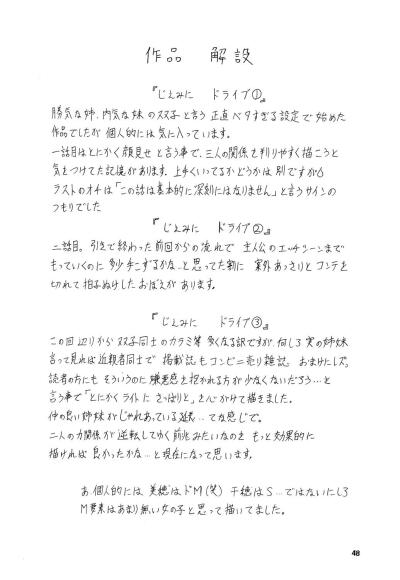 作品 解設
『じえみに ドライブ①』
勝気な姉、内気な妹の双子と言う正直ベタすぎる設定で始めた
作品でしたが個人的には気に入っています。
一話目はとにかく顔見せと言う事で、三人の関係を判りやすく描こうと
気をつけてた記憶があります。上手くいってるかどうかは別ですが
ラストのオチは「この話は基本的に深刻にはなりません」と言うサインの
つもりでした
『じえみに ドライブ②』
二話目。引きで終わった前回からの流れで 主人公のエッチシーンまで
もっていくのに多少手こずるかな…と思ってた割に 案外あっさりとコンテを
切れて拍子ぬけしたおぼえがあります。
『じえみに ドライブ③』
この回辺りから双子同士のカラミ等多くなる訳ですが、何しろ実の姉妹
言って見れば近親者同士で掲載誌もコンビニ売り雑誌。おまけにレズ。
読者の方にもそういうのに嫌悪感を抱かれる方が少なくないだろう…と
言う事で「とにかくライトに さっぱりと」を心がけて描きました。
仲の良い姉妹がじゃれあっている延長…てな感じで。
二人の力関係が逆転してゆく前兆みたいなのをもっと効果的に
描ければ良かったかな…と現在になって思います。
あ、個人的には美穂はドM(笑)千穂はS…ではないにしろ
M要素はあまり無い女の子と思って描いてました。
48